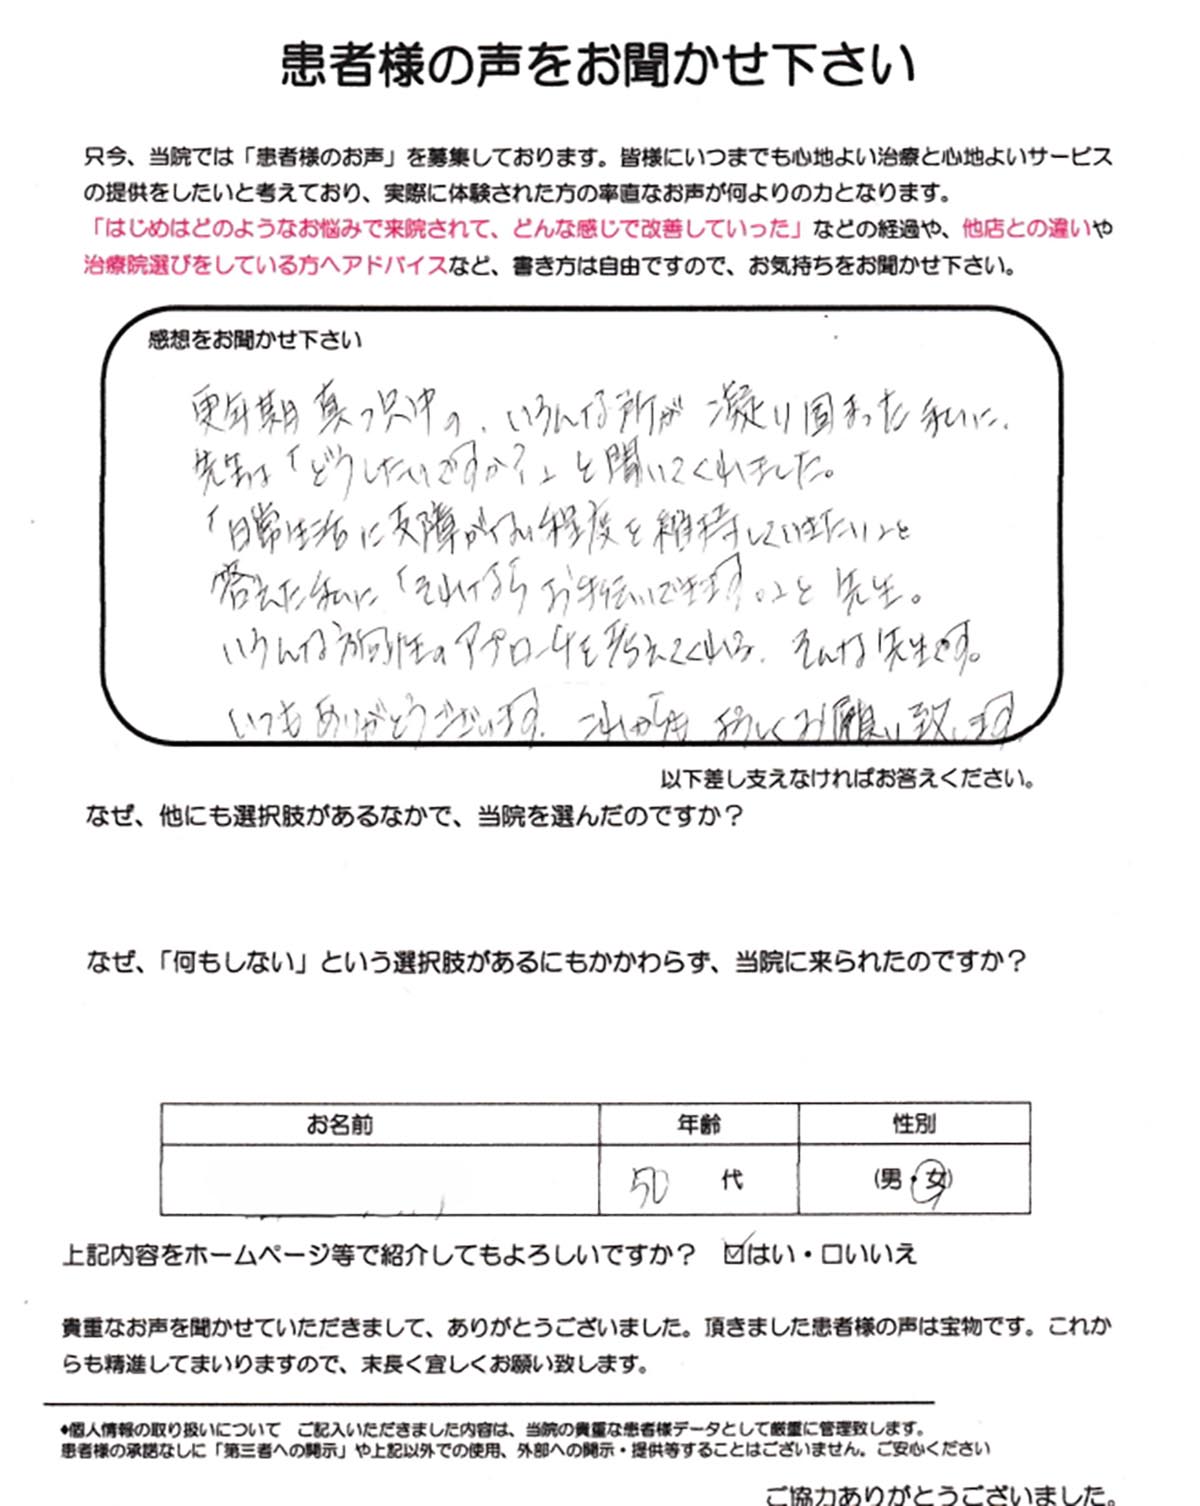 患者様の声をお聞かせ下さい
只今、当院では「患者様のお声」を募集しております。皆様にいつまでも心地よい治療と心地よいサービス
の提供をしたいと考えており、実際に体験された方の率直なお声が何よりの力となります。
「はじめはどのようなお悩みで来院されて、どんな感じで改善していった」などの経過や、他店との違いや
治療院選びをしている方へアドバイスなど、書き方は自由ですので、お気持ちをお聞かせ下さい。
感想をお聞かせ下さい
更年期真っ只中の、いろんな所が凝り固まった私に、
先生は「どうしたいですか?」と聞いてくれました。
「日常生活に支障がない程度を維持していきたい」と
答えた私に「それならお手伝いできます。」と先生。
いろんな方向性のアプローチを考えてくれる、そんな先生です。
いつもありがとうございます。これからもよろしくお願い致します
以下差し支えなければお答えください。
なぜ、他にも選択肢があるなかで、当院を選んだのですか?
なぜ、「何もしない」という選択肢があるにもかかわらず、当院に来られたのですか?
お名前 年齢 性別
50 代 (男・女)
上記内容をホームページ等で紹介してもよろしいですか? ☑はい・☐いいえ
貴重なお声を聞かせていただきまして、ありがとうございました。頂きました患者様の声は宝物です。これか
らも精進してまいりますので、末長く宜しくお願い致します。
◆個人情報の取り扱いについて ご記入いただきました内容は、当院の貴重な患者様データとして厳重に管理致します。
患者様の承諾なしに「第三者への開示」や上記以外での使用、外部への開示・提供等することはございません。ご安心ください
ご協力ありがとうございました。